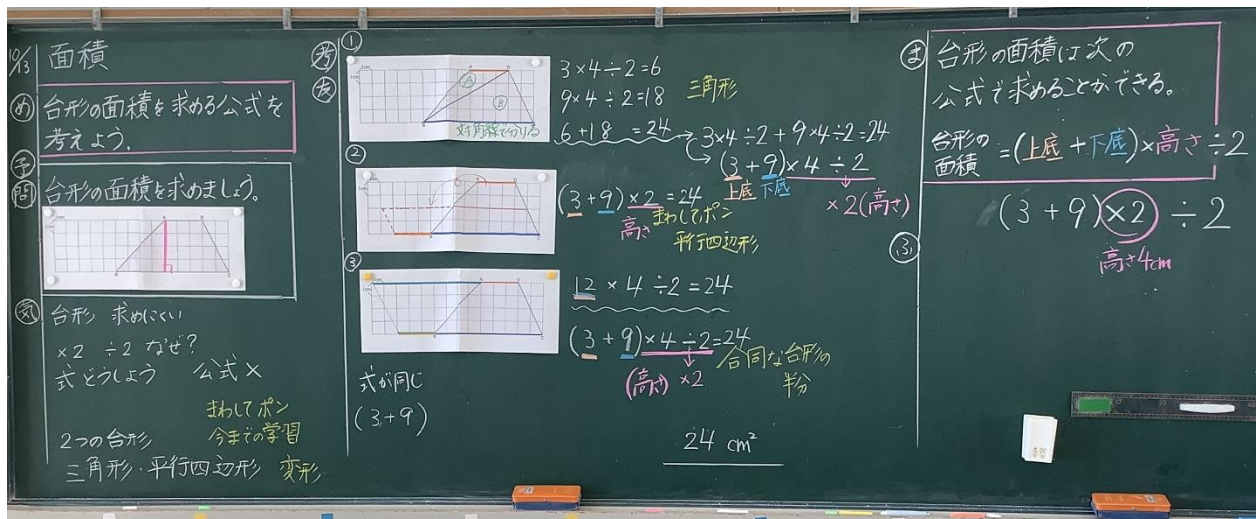 10/13
面積
め
台形の面積を求める公式を
考えよう。
予
問
台形の面積を求めましょう。
A
D
B
C
気
台形 求めにくい
×2 ÷2 なぜ?
式 どうしよう 公式×
まわしてポン
今までの学習
2つの台形
三角形・平行四辺形 変形
考
友
①
A
D
Ⓐ
Ⓑ
対角線で分ける
3×4÷2=6
9×4÷2=18
三角形
6+18=24
3×4÷2+9×4÷2=24
(3+9)×4÷2
上底 下底
×2(高さ)
②
(3+9)×2=24
高さ
まわしてポン
平行四辺形
③
12×4÷2=24
(3+9)×4÷2=24
(高さ)×2
合同な台形の
半分
式が同じ
(3+9)
24 cm²
ま
台形の面積は次の
公式で求めることができる。
台形の
面積
=(上底+下底)×高さ÷2
(3+9)×2÷2
高さ4cm
ふ